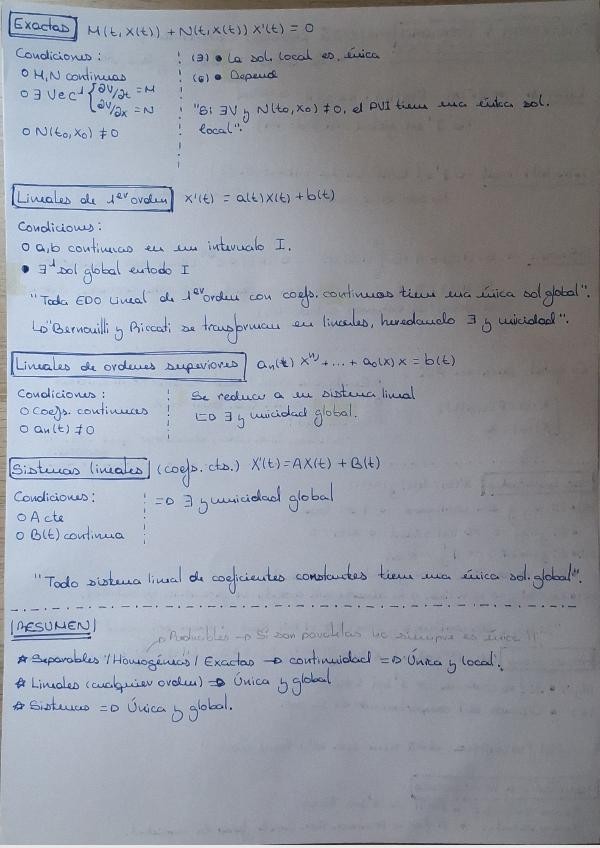 Exactas M(t, x(t)) + N(t, x(t)) x'(t) = 0
Condiciones:
o M, N continuas
o ∃ V ∈ C¹ { ∂V/∂t = M
∂V/∂x = N
o N(t₀, x₀) ≠ 0
(∃) • La sol. local es única
(G) • Depend
"Si ∃V y N(t₀, x₀) ≠ 0, el PVI tiene una única sol.
local".
Lineales de 1er orden x'(t) = a(t)x(t) + b(t)
Condiciones:
o a, b continuas en un intervalo I.
• ∃¹ sol global en todo I
"Toda EDO lineal de 1er orden con coefs. continuos tiene una única sol global".
↳ "Bernouilli y Riccati se transforman en lineales, heredando ∃ y unicidad".
Lineales de ordenes superiores aₙ(t) xⁿ⁾ + ... + a₀(x) x = b(t)
Condiciones:
o Coefs. continuos
o aₙ(t) ≠ 0
Se reduce a un sistema lineal
⇒ ∃ y unicidad global.
Sistemas lineales (coefs. cts.) X'(t) = AX(t) + B(t)
Condiciones:
o A cte
o B(t) continua
⇒ ∃ y unicidad global
"Todo sistema lineal de coeficientes constantes tiene una única sol. global".
RESUMEN
Reducibles → Si son paralelas no siempre es única !!
☆ Separables / Homogéneas / Exactas → continuidad ⇒ Única y local.
☆ Lineales (cualquier orden) ⇒ Única y global
☆ Sistemas ⇒ Única y global.